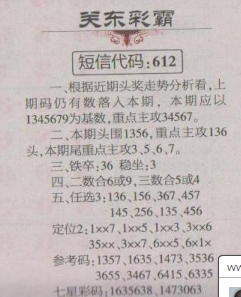 关东彩霸
短信代码:612
一、根据近期头奖走势分析看,上
期码仍有数落入本期,本期应以
1345679为基数,重点主攻34567。
二、本期头围1356,重点主攻136
头,本期尾重点主攻3、5、6、7。
三、铁卒:36 稳坐:3
四、二数合6或9,三数合5或4
五、任选3:136,156,367,457
145,256,135,456
定位2:1××7,1××5,1××3,3××6
35××,3××7,6××5,6×1×
参考码:1357,1635,1473,3536
3655,3467,6415,6335
七星彩码:1635638,1473063
ww